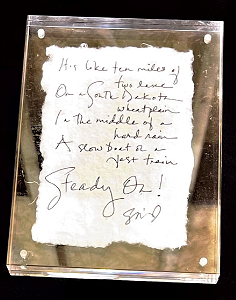 It's like ten miles of
two lane
On a South Dakota
wheat plain
In the middle of a
hard rain
A slow boat or a
fast train
Steady On!